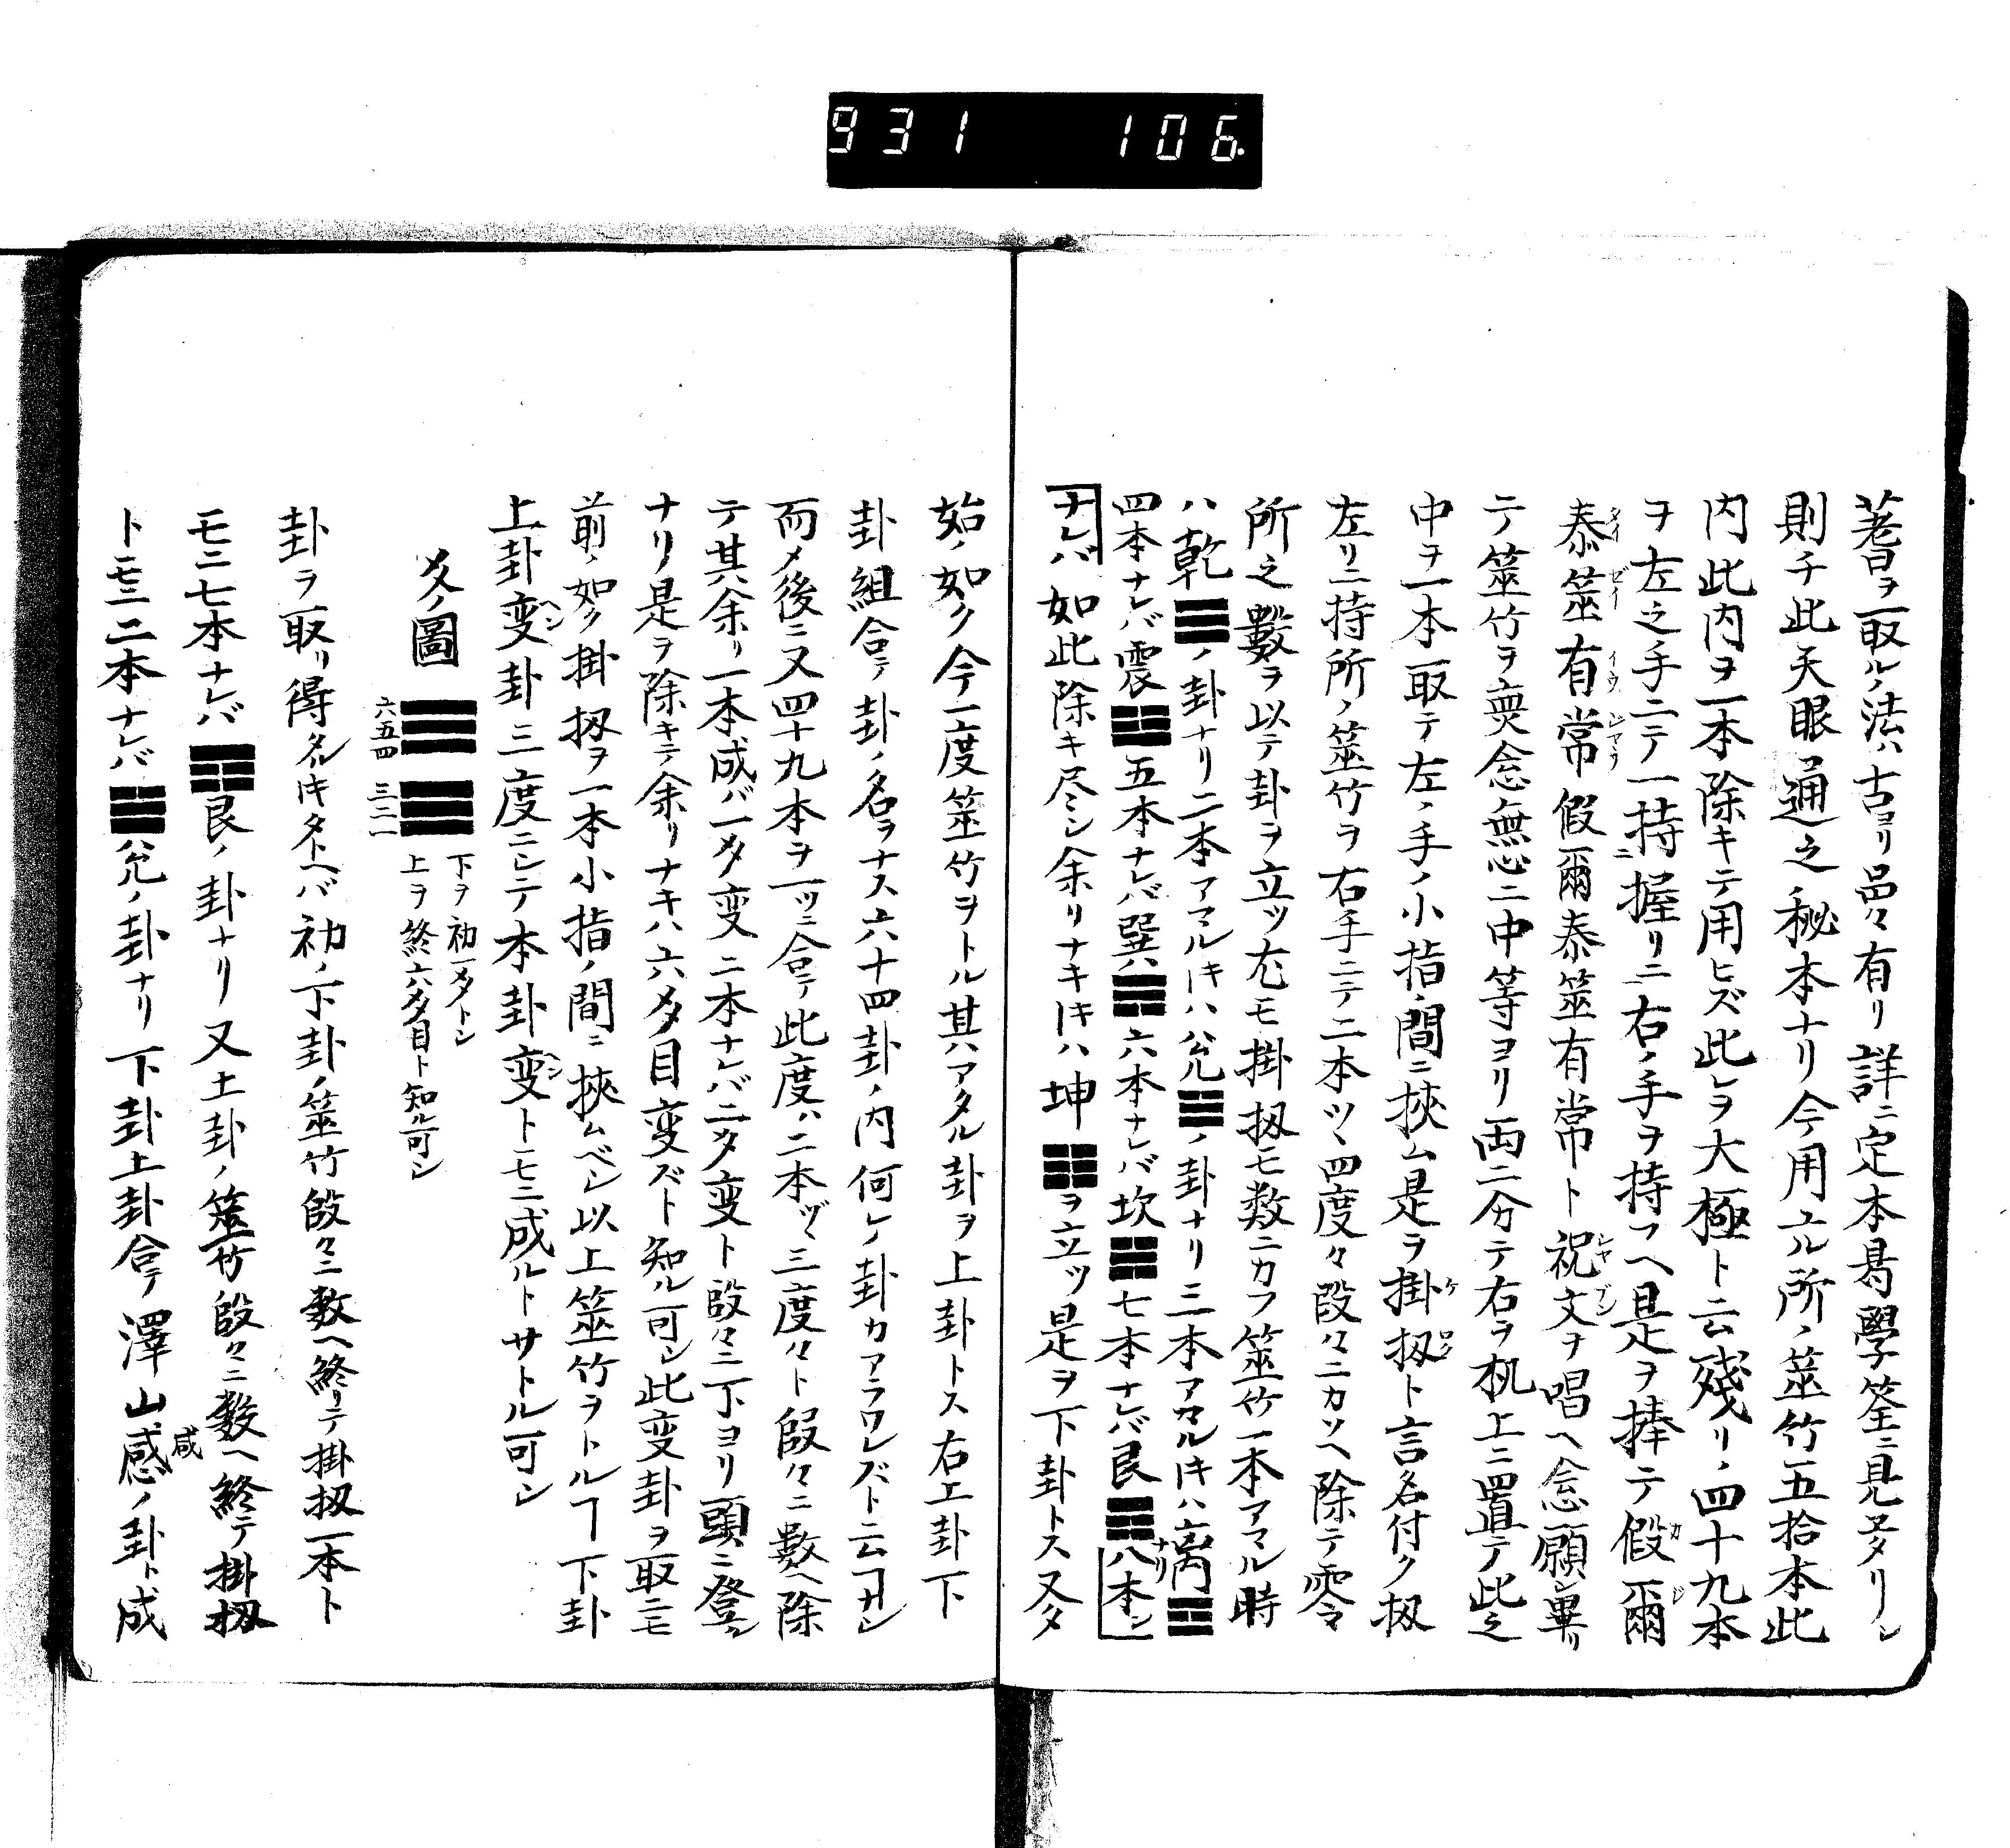 931 106
蓍ヲ取ルノ法ハ古ヨリ品々有リ詳ニ定本易學筌ニ見ヱタリシ
則チ此天眼通之秘本ナリ今用ユル所ノ筮竹五拾本此
内此内ヲ一本除キテ用ヒズ此レヲ大極ト云残リノ四十九本
ヲ左之手ニテ一持ニ握リニ右ノ手ヲ持フヘ是ヲ捧テ假爾
泰筮有常假爾泰筮有常ト祝文ヲ唱ヘ念願シ畢リ
テ筮竹ヲ奭念無心ニ中等ヨリ両ニ分テ右ヲ机上ニ置テ此之
中ヲ一本取テ左ノ手ノ小指ノ間ニ挾ム是ヲ掛扐ト言名付ク扐
左リニ持所ノ筮竹ヲ右手ニテ二本ツヽ四度々段々ニカソヘ除テ零マ
所之數ヲ以テ卦ヲ立ツ尤モ掛扐モ数ニカフ筮竹一本アマル時
ハ乾☰ノ卦ナリ二本アマルトキハ兌☱ノ卦ナリ三本アマルトキハ離☲ナリ
四本ナレバ震☳五本ナレバ巽ハ☴六本ナレバ坎☵七本ナレバ艮☶八本ン
ナレバ如此除キ尽シ余リナキトキハ坤☷ヲ立ツ是ヲ下卦トス又タ
始ノ如ク今一度筮竹ヲトル其ハアタル卦ヲ上卦トス右エ卦下
卦組合テ卦ノ名ヲナス六十四卦ノ内何レノ卦カアラワレズト云フコナシ
而メ後ニ又四十九本ヲ一ツニ合テ此度ハ二本ヅヽ三度々ト段々ニ數ヘ除
テ其余リ一本成バ一爻変二本ナレバ二爻変ト段々ニ下ヨリ頭ニ登ル
ナリノ是ヲ除キテ余リナキハ六爻目変ズト知ル可シ此変卦ヲ取ニモ
前ノ如ク掛扐ヲ一本小指ノ間ニ挾ムベシ以上筮竹ヲトルヿ下卦
上卦変卦三度ニシテ本卦変トモニ成ルトサトル可シ
爻ノ圖
六五四 三二一
下ヲ初爻トシ
上ヲ終六爻目ト知ル可シ
卦ヲ取リ得タルトキタトヘバ初ノ下卦ノ筮竹段々ニ数ヘ終リテ掛扐一本ト
モニ七本ナレバ☶艮ノ卦ナリ又上卦ノ筮竹段々ニ数ヘ終テ掛扐
トモニ二本ナレバ☱ハ兌ノ卦ナリ下卦上卦合テ澤山感咸ノ卦ト成